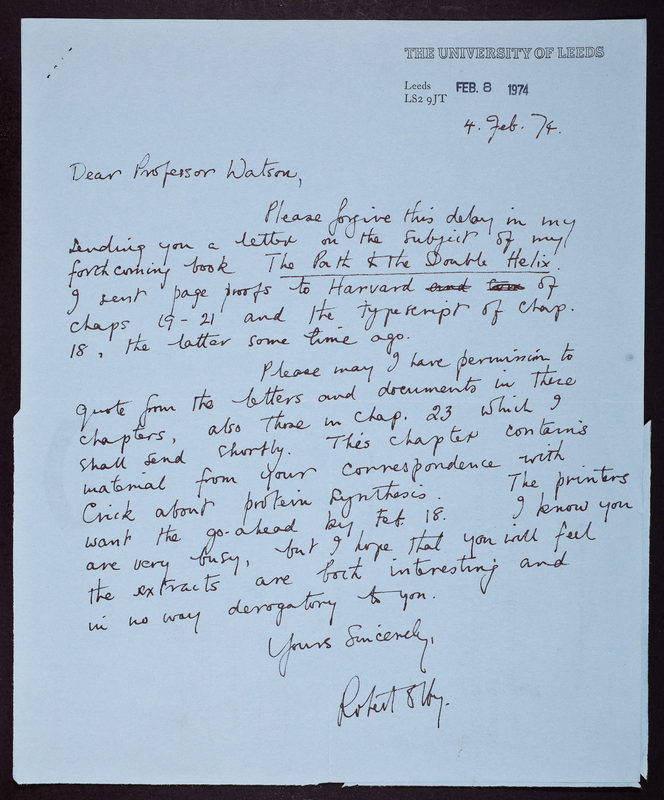 THE UNIVERSITY OF LEEDS
Leeds
LS2 9JT
FEB. 8 1974
4. Feb. 74.
Dear Professor Watson,
Please forgive this delay in my
sending you a letter on the subject of my
forthcoming book The Path to the Double Helix.
I sent page proofs to Harvard of
chaps 19-21 and the typescript of chap.
18, the latter some time ago.
Please may I have permission to
quote from the letters and documents in these
chapters, also those in chap. 23 which I
shall send shortly. This chapter contains
material from your correspondence with
Crick about protein synthesis. The printers
want the go-ahead by Feb. 18. I know you
are very busy, but I hope that you will feel
the extracts are both interesting and
in no way derogatory to you.
Yours Sincerely,
Robert Olby.